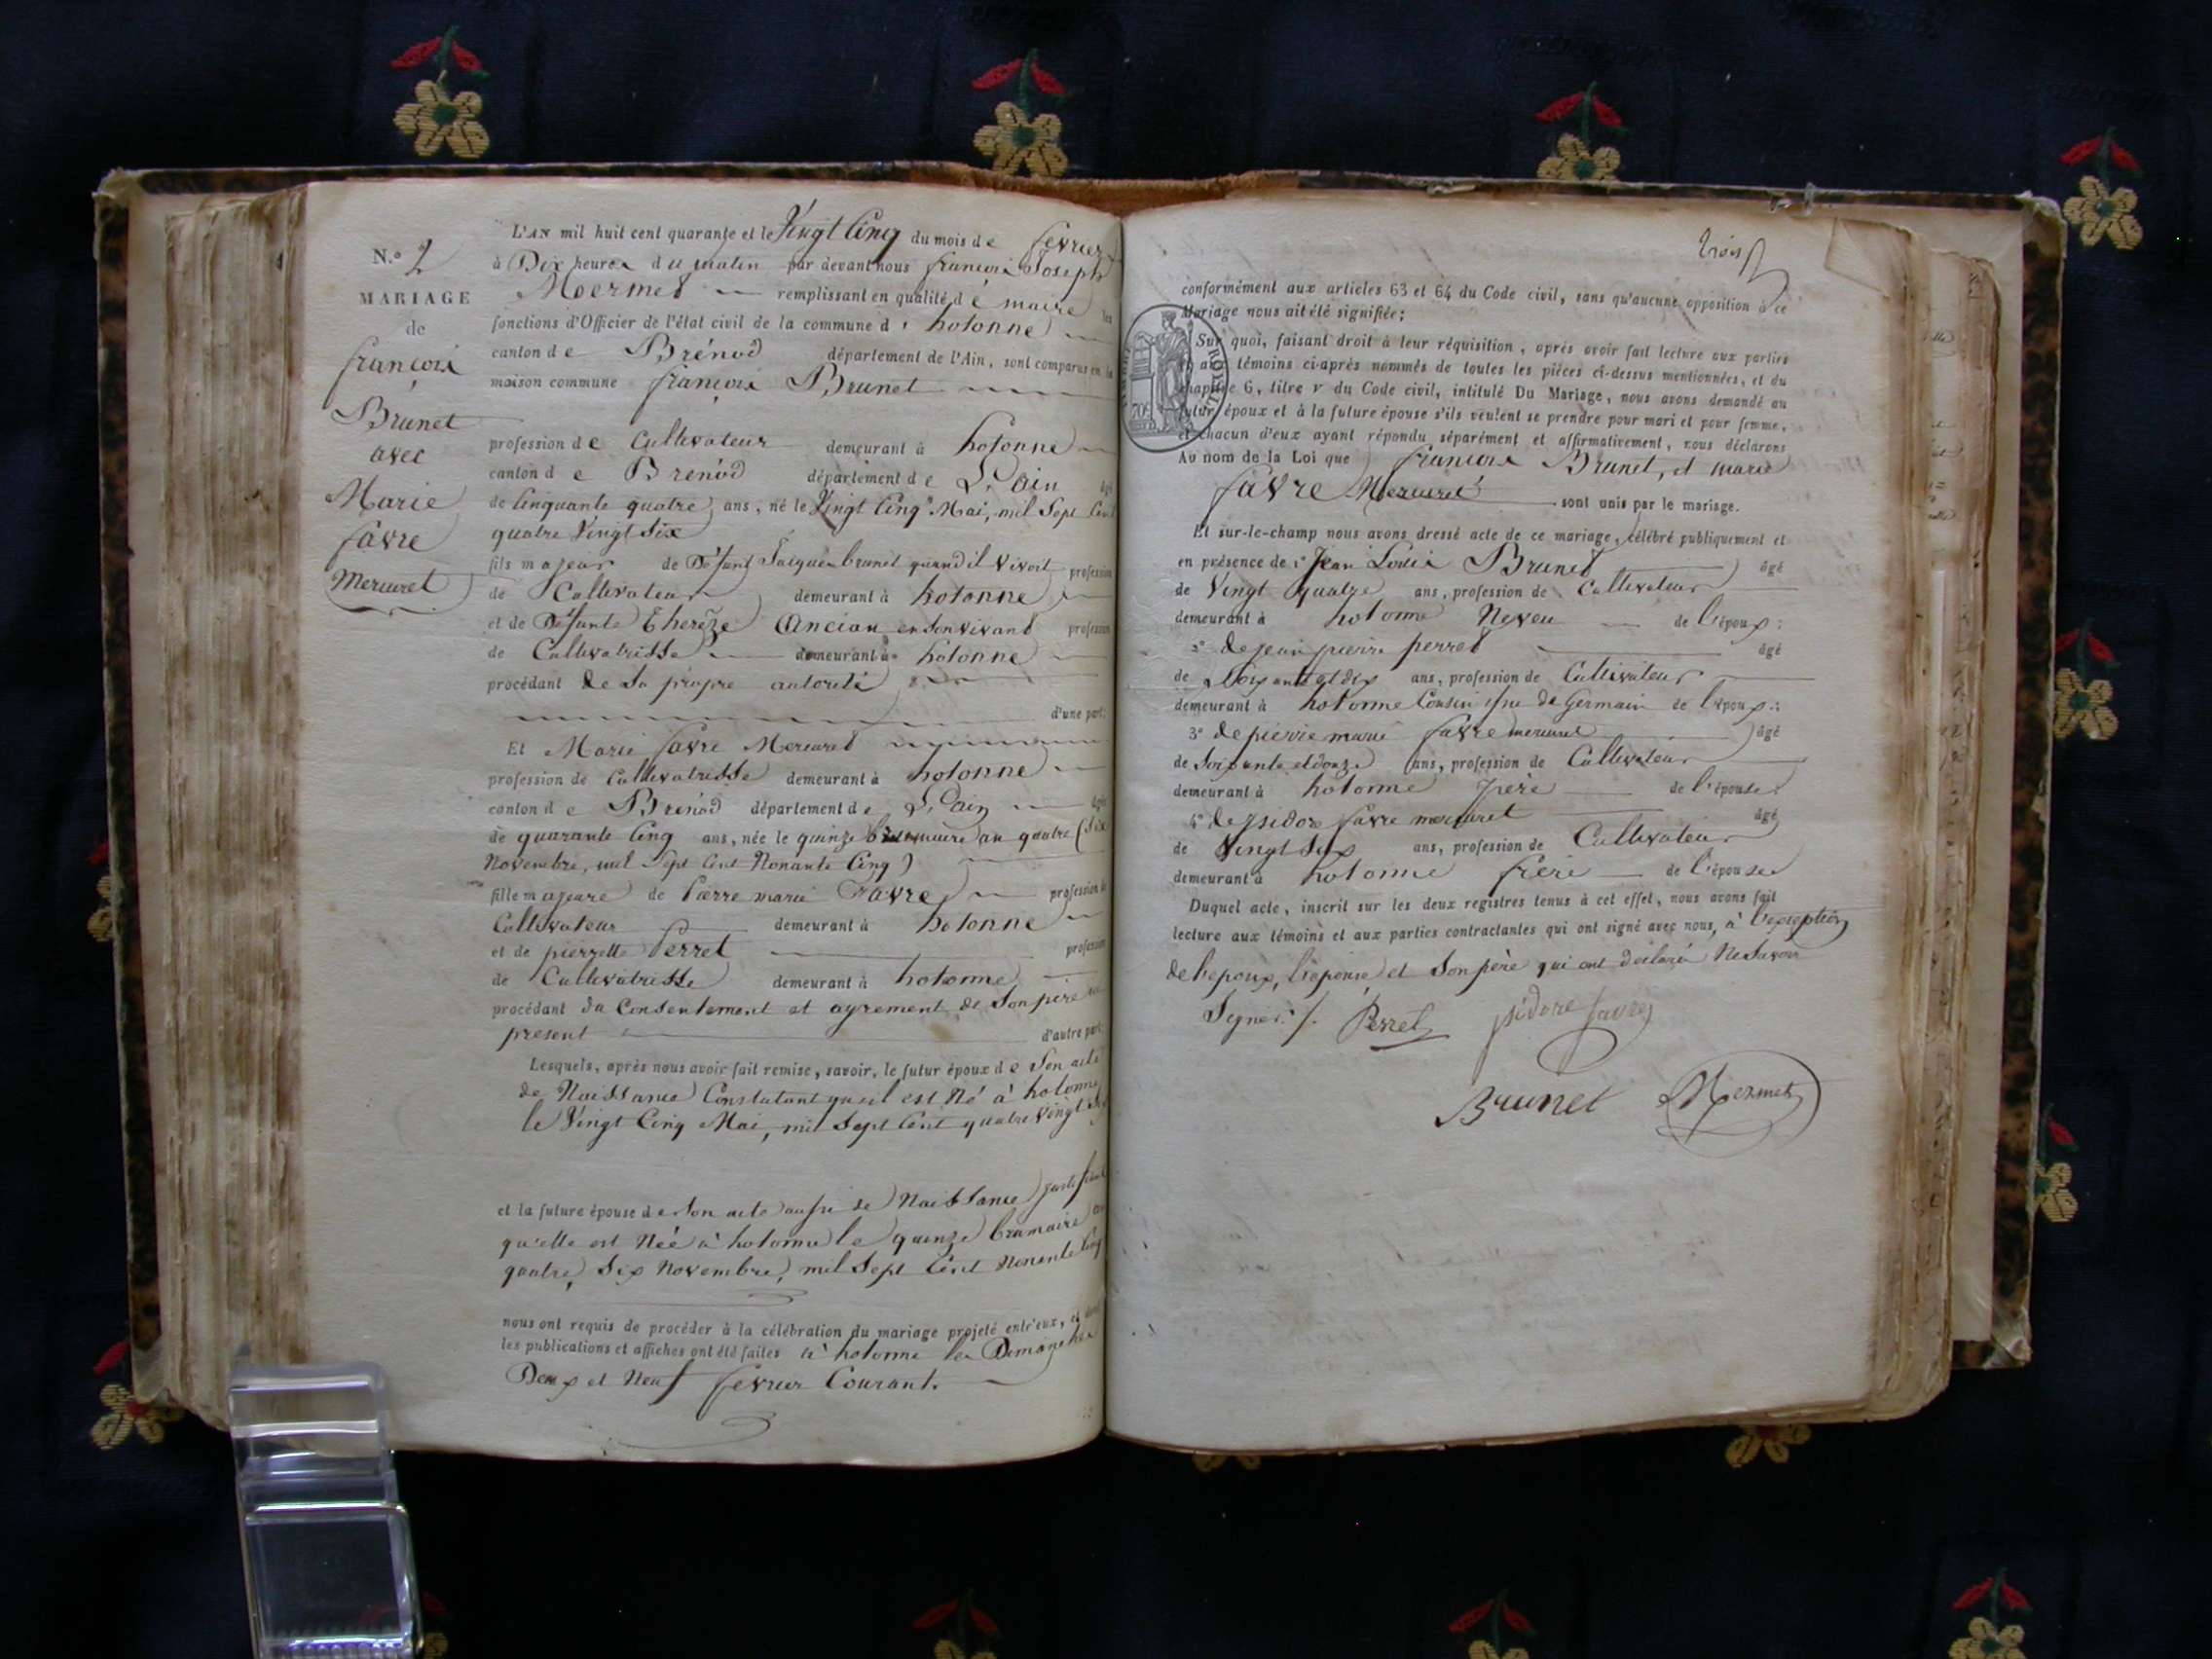 N.° 2
MARIAGE
de
françois
Brunet
avec
Marie
favre
Mercuret
L'AN mil huit cent quarante et le Vingt Cinq du mois de fevrier
à Dix heures du matin par devant nous françois Joseph
Mermet remplissant en qualité de maire les
fonctions d'Officier de l'état civil de la commune d' hotonne
canton de Brénod département de l'Ain, sont comparus en la
maison commune françois Brunet
profession de Cultivateur demeurant à hotonne
canton de Brenod département de L'Ain âgé
de Cinquante quatre ans, né le Vingt Cinq Mai, mil Sept Cent
quatre Vingt Six
fils majeur de Défunt Jacques brunet quand il vivoit profession
de Cultivateur demeurant à hotonne
et de Défunte Thereze Ancian en son vivant profession
de Cultivatrisse demeurant à hotonne
procédant de Sa propre autorité
d'une part;
Et Marie favre Mercuret
profession de Cultivatrisse demeurant à hotonne
canton de Brenod département de L'ain âgée
de quarante Cinq ans, née le quinze brumaire an quatre (Six
Novembre, mil Sept Cent Nonante Cinq)
fille majeure de Pierre marie Favre profession de
Cultivateur demeurant à hotonne
et de pierrette Perret profession
de Cultivatrisse demeurant à hotonne
procédant du Consentement et agrement de Son père
present d'autre part;
Lesquels, après nous avoir fait remise, savoir, le futur époux de Son acte
de Naissance Constatant qu'il est Né à hotonne
le Vingt Cinq Mai, mil Sept Cent quatre Vingt Six
et la future épouse de Son acte aussi de Naissance justifiant
qu'elle est Née à hotonne le quinze brumaire an
quatre, Six Novembre, mil Sept Cent Nonante Cinq
nous ont requis de procéder à la célébration du mariage projeté entr'eux, et dont
les publications et affiches ont été faites à hotonne les Dimanches
Deux et Neuf fevrier Courant.
trois
conformément aux articles 63 et 64 du Code civil, sans qu'aucune opposition à ce
Mariage nous ait été signifiée;
Sur quoi, faisant droit à leur réquisition, après avoir fait lecture aux parties
et aux témoins ci-après nommés de toutes les pièces ci-dessus mentionnées, et du
chapitre 6, titre v du Code civil, intitulé Du Mariage, nous avons demandé au
futur époux et à la future épouse s'ils veulent se prendre pour mari et pour femme,
et chacun d'eux ayant répondu séparément et affirmativement, nous déclarons
Au nom de la Loi que françois Brunet, et marie
favre Mercuret sont unis par le mariage.
Et sur-le-champ nous avons dressé acte de ce mariage, célébré publiquement et
en présence de 1° Jean Louis Brunet âgé
de Vingt quatre ans, profession de Cultivateur
demeurant à hotonne Neveu de l'époux;
2° de jean pierre perret âgé
de Soixante et dix ans, profession de Cultivateur
demeurant à hotonne Cousin issu de Germain de l'époux;
3° de pierre marie favre mercuret âgé
de Soixante et douze ans, profession de Cultivateur
demeurant à hotonne père de l'épouse
4° de isidore favre mercuret âgé
de Vingt Six ans, profession de Cultivateur
demeurant à hotonne frère de l'épouse
Duquel acte, inscrit sur les deux registres tenus à cet effet, nous avons fait
lecture aux témoins et aux parties contractantes qui ont signé avec nous, à l'exception
de l'epoux, l'epouse, et Son père qui ont déclaré Ne Savoir
Signer. Perret isidore favre
Brunet Mermet
TIMBRE ROYAL
70